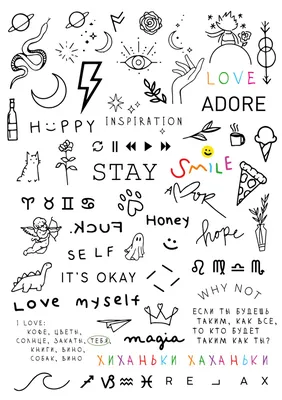 LOVE
ADORE
HAPPY
INSPIRATION
STAY
SMILE
Honey
FUCK.
hope
SELF
IT'S OKAY
WHY NOT
Love myself
I LOVE:
КОФЕ, ЦВЕТЫ,
СОЛНЦЕ, ЗАКАТЫ, ТЕБЯ,
КНИГИ, ВИНО,
СОБАК, ВИНО
magia
ЕСЛИ ТЫ БУДЕШЬ
ТАКИМ, КАК ВСЕ,
ТО КТО БУДЕТ
ТАКИМ КАК ТЫ?
ХИХАНЬКИ ХАХАНЬКИ
RELAX